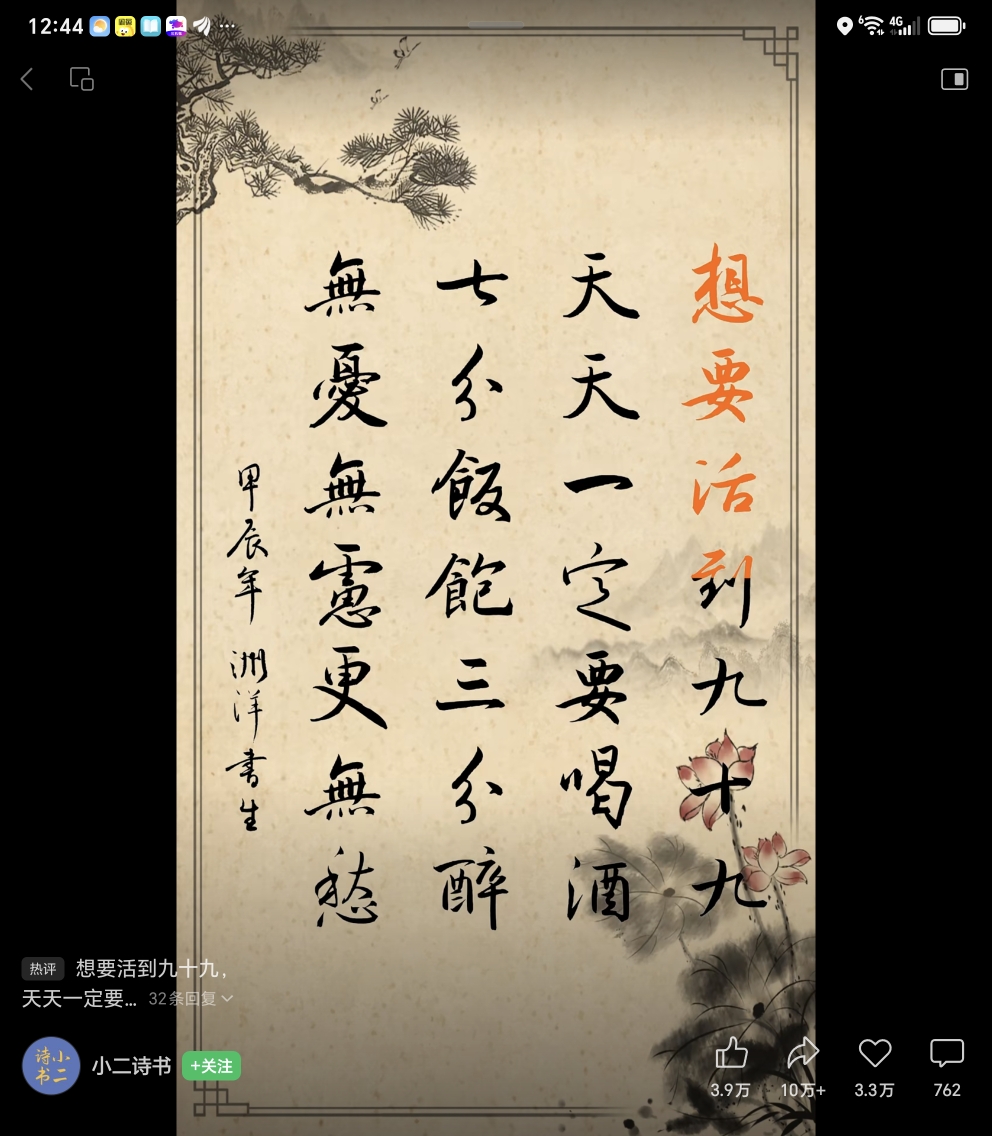 12:44
6
4G
想要活到九十九
天天一定要喝酒
七分飯飽三分醉
無憂無慮更無愁
甲辰年 洲洋書生
热评 想要活到九十九，
天天一定要... 32条回复
诗小
书二
小二诗书 +关注
3.9万 10万+ 3.3万 762